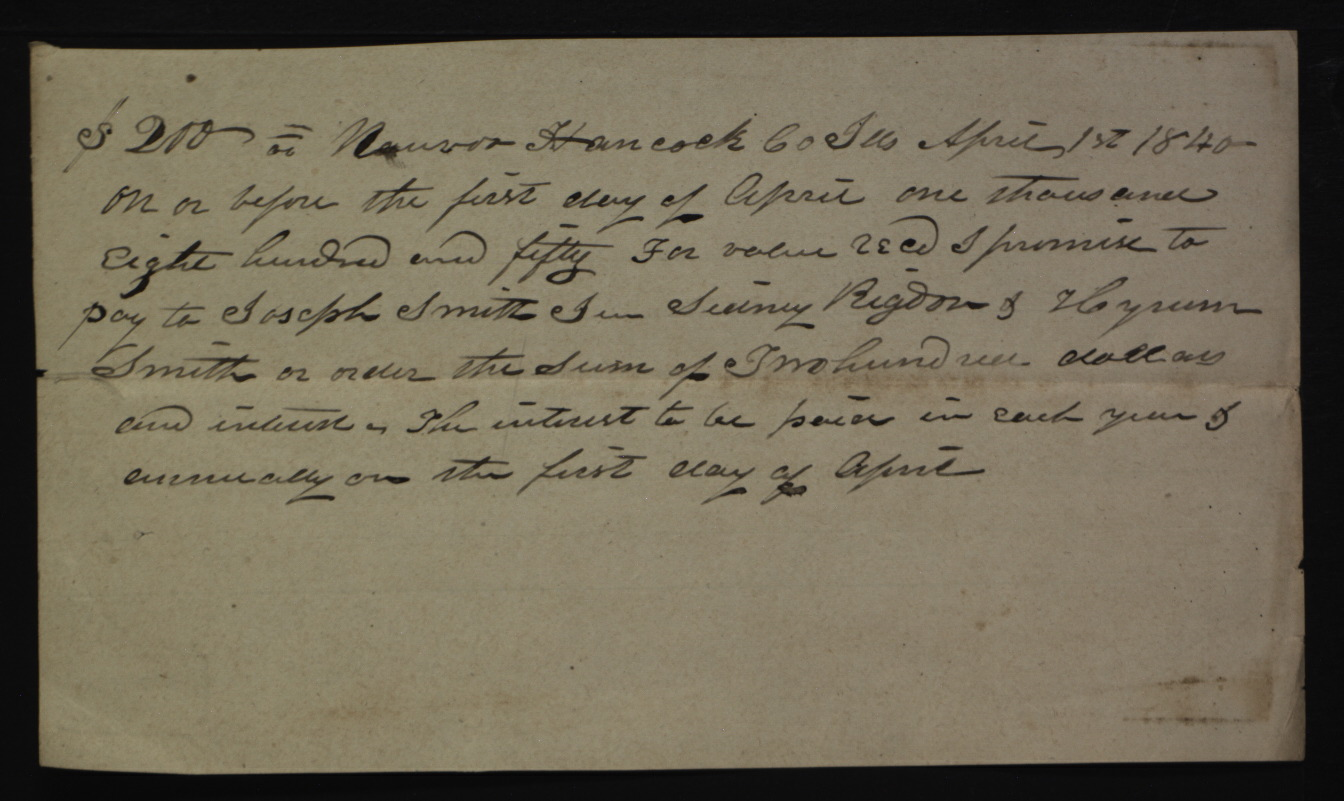 $200 00 Nauvoo Hancock Co Ills April 1st 1840
on or before the first day of April one thousand
eight hundred and fifty For value recd I promise to
pay to Joseph Smith Jun Sidney Rigdon & Hyrum
Smith or order the sum of Two hundred dollars
and interest The interest to be paid in each year &
annually on the first day of April